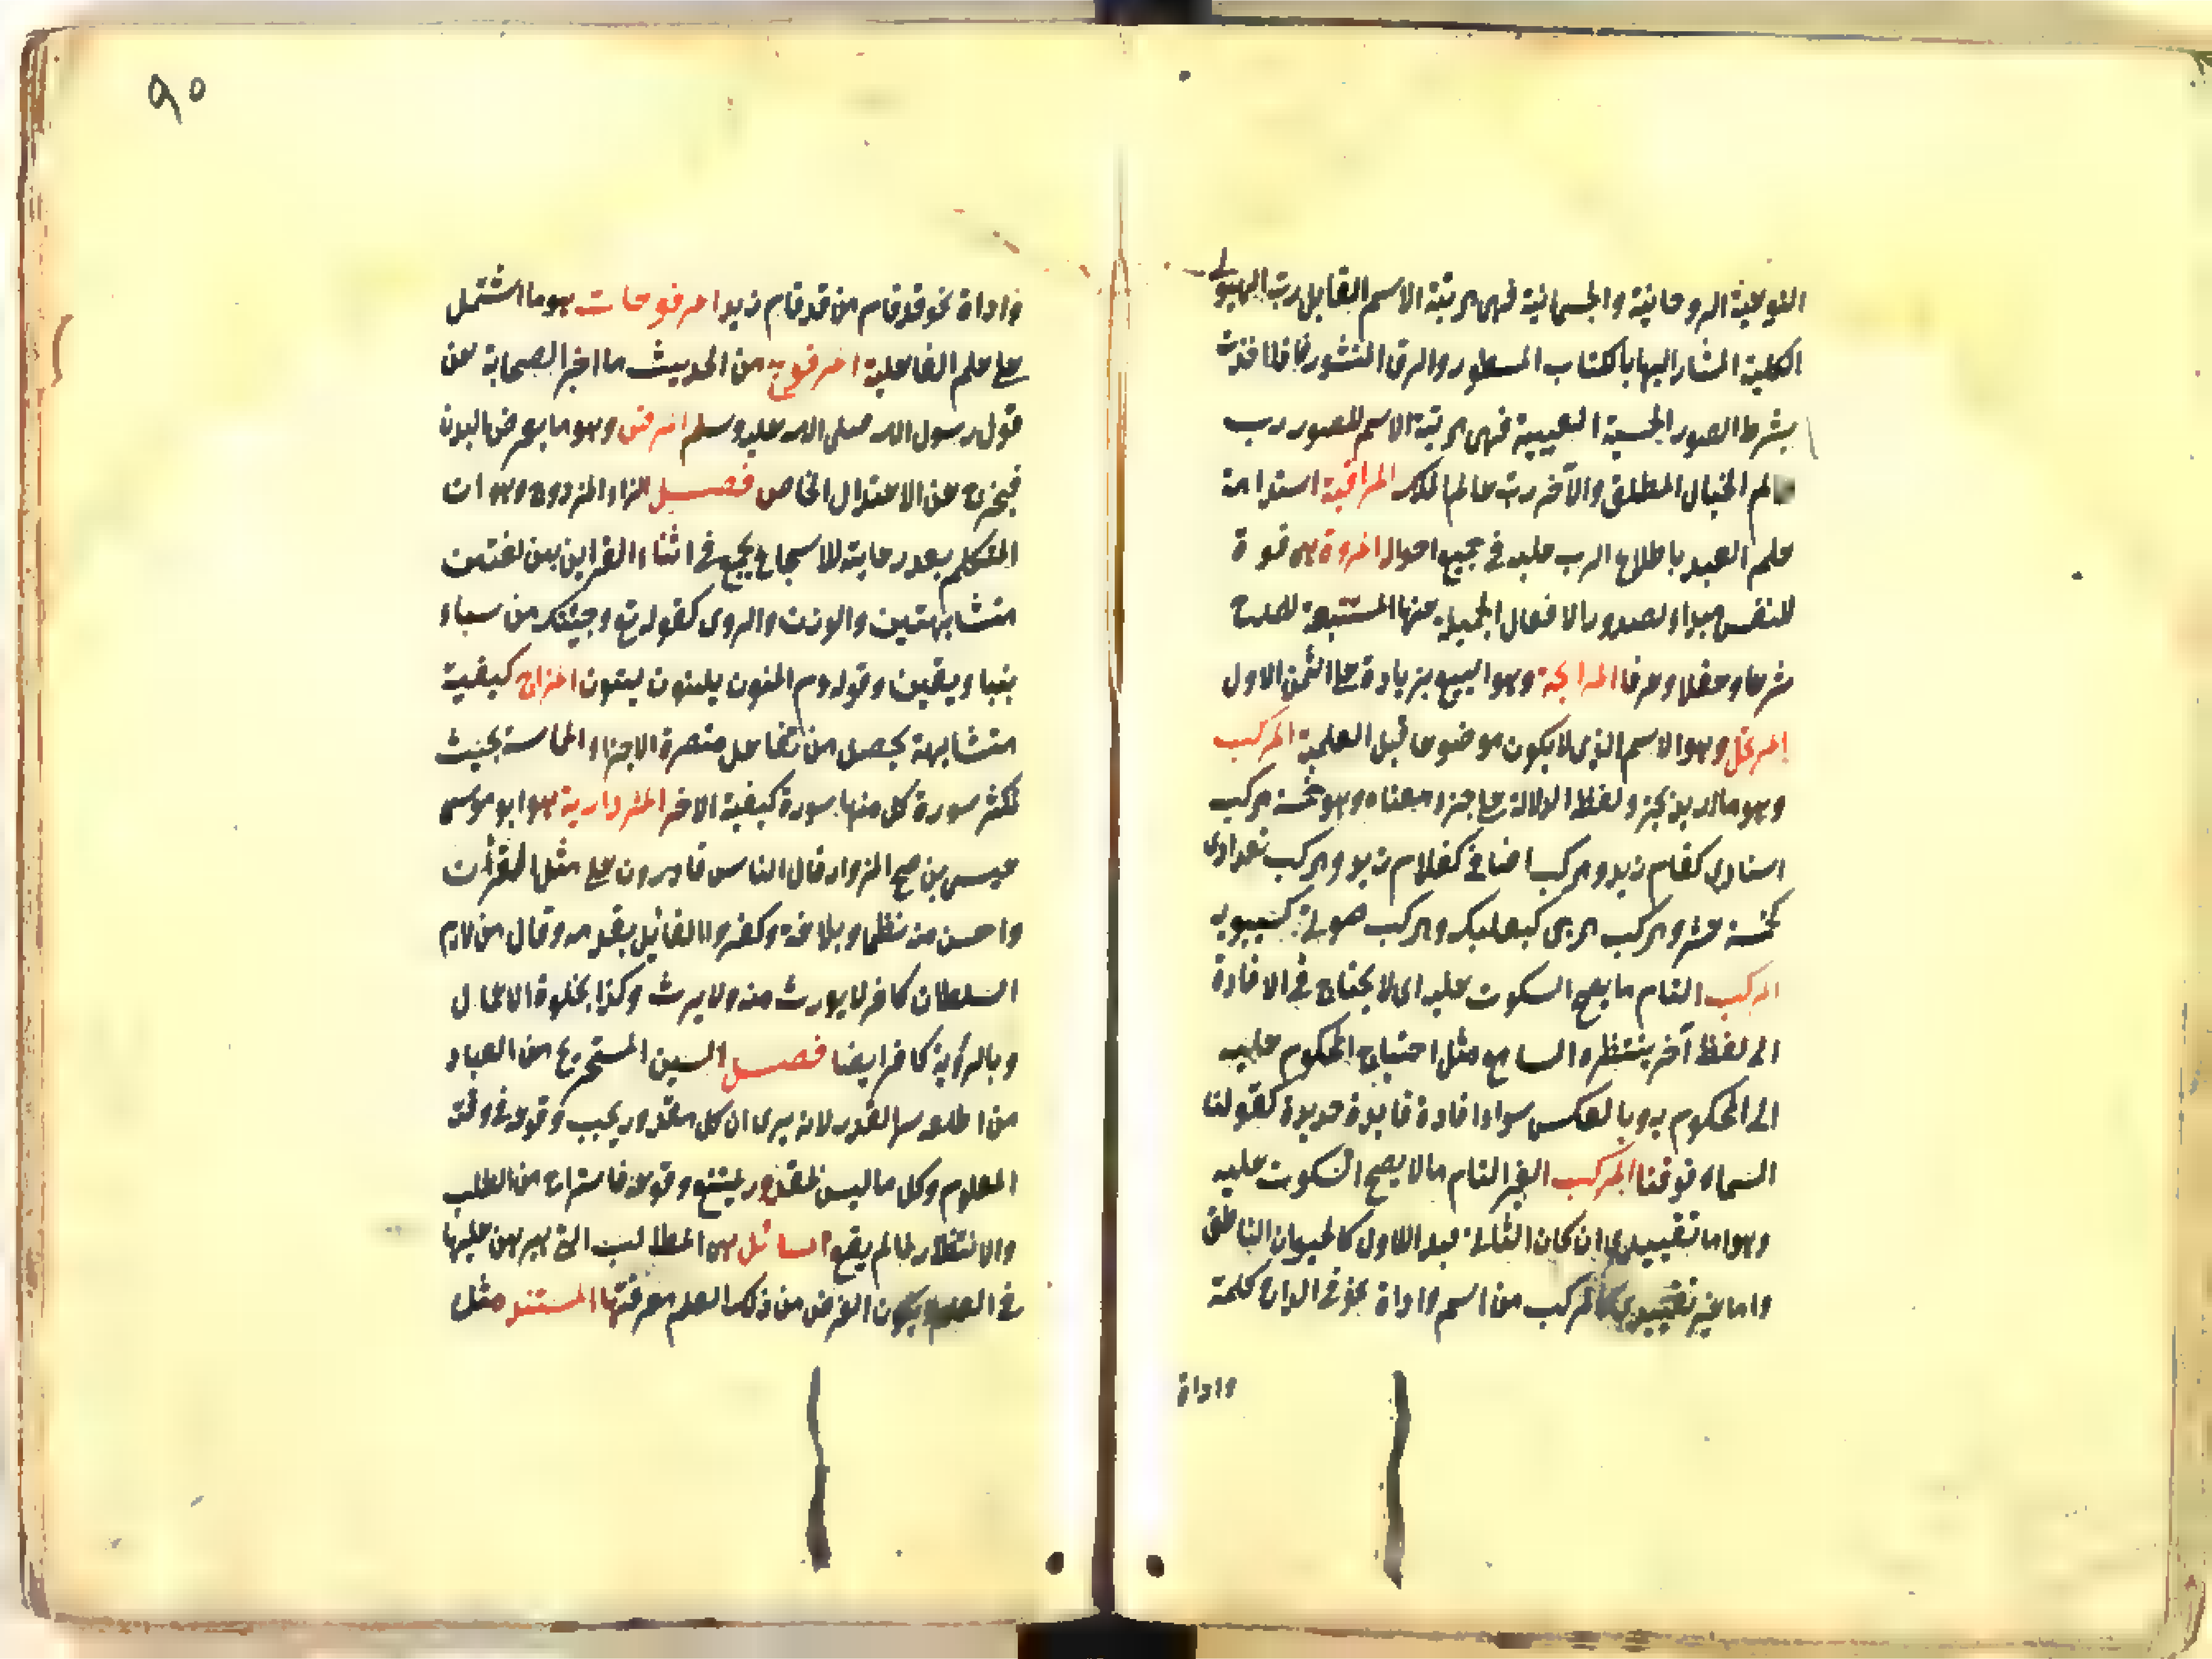 النوعية الروحانية والجسمانية فهى مرتبة الاسم القابل رب الهيولى
الكلية المشار اليها بالكتاب المسطور والرق المنشور فاذا اخذت
بشرط الصور الحسية العينية فهى مرتبة الاسم المصور رب
عالم الخيال المطلق والآخر رب عالم الملك المراقبة استدامة
علم العبد باطلاع الرب عليه فى جميع احواله المروة هى قوة
للنفس مبداء لصدور الافعال الجميلة عنها المستتبعة للمدح
شرعا وعقلا وعرفا المرابحة وهو البيع بزيادة على الثمن الاول
المرتجل وهو الاسم الذى لا يكون موضوعا قبل العلمية المركب
وهو ما اريد بجزء لفظ الدلالة على جزء معناه وهو خمسة مركب
اسنادى كقام زيد ومركب اضافى كغلام زيد ومركب تعدادى
كخمسة عشر ومركب مزجى كبعلبك ومركب صوتى كسيبويه
المركب التام ما يصح السكوت عليه اى لا يحتاج فى الافادة
الى لفظ آخر ينتظره السامع مثل احتياج المحكوم عليه
الى المحكوم به وبالعكس سواء افادة فايدة جديدة كقولنا
السماء فوقنا المركب الغير التام ما لا يصح السكوت عليه
وهو اما تقييدى ان كان الثانى قيد للاول كالحيوان الناطق
واما غير تقييدى كالمركب من اسم واداة نحو فى الدار او كلمة
واداة
٩٠
واداة نحو قد قام من قد قام زيد المرفوعات هو ما اشتمل
على علم الفاعلية المرفوع من الحديث ما اخبر الصحابة عن
قول رسول الله صلى الله عليه وسلم المرض وهو ما يعرض البدن
فيخرج عن الاعتدال الخاص فصل الزاء المزدوج وهو ان
المتكلم بعد رعاية للاسجاع يجمع فى اثناء القراين بين لفظين
متشابهتين والوزن والروى كقوله تع وجئتك من سباء
بنباء يقين وقوله وم المؤمنون هينون لينون المزاج كيفية
متشابهة يحصل من تفاعل عنصرة الاجزاء المماسة بحيث
تكسر سورة كل منها سورة كيفية الاخر المزدارية هو ابو موسى
عيسى بن صبيح المزدار قال الناس قادرون على مثل القرأن
واحسن منه نظما وبلاغة وكفر القائل بقدمه وقال من لازم
السلطان كافر لا يورث منه ولا يرث وكذا بخلق الاعمال
وبالرؤية كافر ايضا فصل السين المستريح من العباد
من اطلعه سر القدر لانه يرى ان كل مقدور يجب وقوعه فى وقته
المعلوم وكل ما ليس بمقدور يمتنع وقوعه فاستراح من الطلب
والانتظار لما لم يقع المسائل هى المطالب التى يبرهن عليها
فى العلم ويكون الغرض من ذلك العلم معرفتها المستند مثل